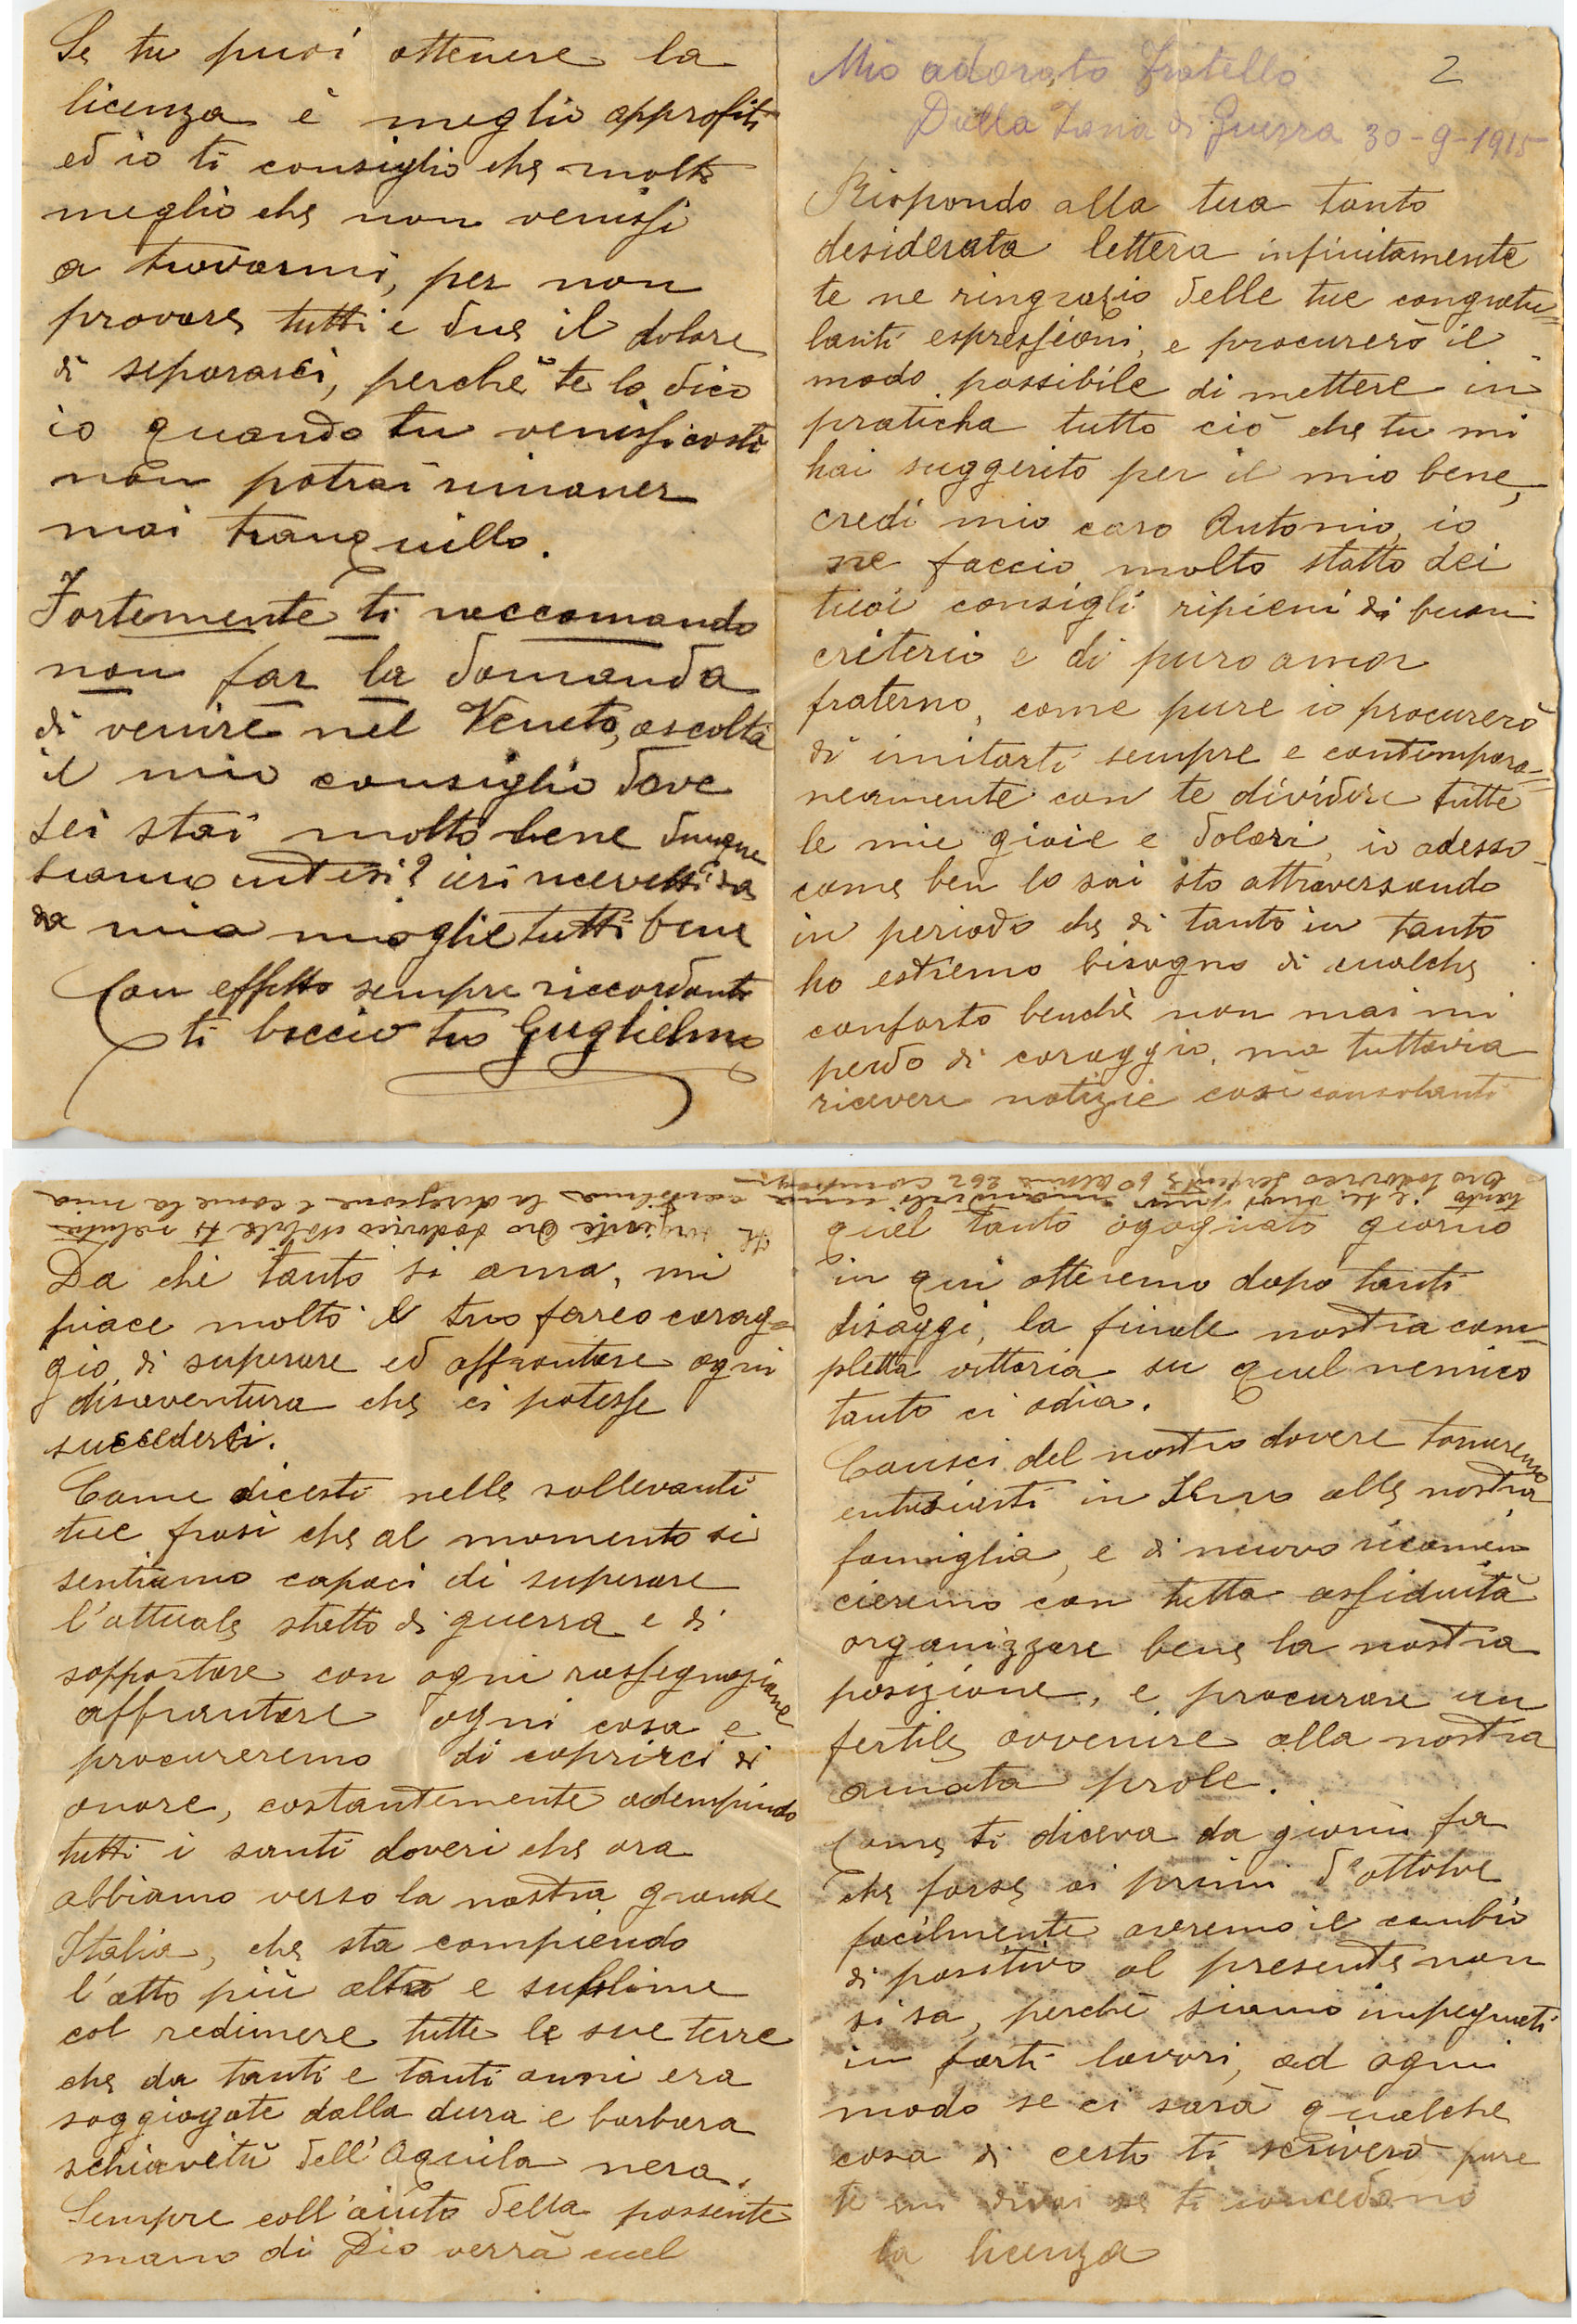 Mio adorato fratello 2
Dalla Zona di Guerra 30-9-1915
Rispondo alla tua tanto
desiderata lettera infinitamente
te ne ringrazio delle tue congratu=
lanti espressioni, e procurerò il
modo possibile di mettere in
praticha tutto ciò che tu mi
hai suggerito per il mio bene,
credi mio caro Antonio, io
ne faccio molto statto dei
tuoi consigli ripieni di buon
criterio e di puro amor
fraterno, come pure io procurerò
di imitarti sempre e contempora=
neamente con te dividere tutte
le mie gioie e dolori, io adesso
come ben lo sai sto attraversando
in periodo che di tanto in tanto
ho estremo bisogno di qualche
conforto benchè non mai mi
perdo di coraggio, ma tuttavia
ricevere notizie così consolanti
Da chi tanto si ama, mi
piace molto il tuo ferreo corag=
gio, di superare ed affrontare ogni
disaventura che ci potesse
succederci.
Come dicesti nelle sollevanti
tue frasi che al momento si
sentiamo capaci di superare
l'attuale statto di guerra e di
soppostare con ogni rassegnazione
affrontare ogni cosa e
procureremo di coprirci di
onore, costantemente adempindo
tutti i santi doveri che ora
abbiamo verso la nostra grande
Italia, che sta compiendo
l'atto più alto e sublime
col redimere tutte le sue terre
che da tanti e tanti anni era
soggiogate dalla dura e barbara
schiavitù dell'Aquila nera.
Sempre coll'aiuto della possente
mano di Dio verrà quel
quel tanto agognato giorno
in qui otteremo dopo tanti
disaggi, la finale nostra com=
pletta vittoria su quel nemico
tanto ci odia.
Consci del nostro dovere torneremo
entusiasti in seno alla nostra
famiglia, e di nuovo ricomin
cieremo con tutta assiduità
organizzare bene la nostra
posizione, e procurare un
fertile avvenire alla nostra
amata prole.
Come ti diceva da giorni fa
che forse ai primi d'ottobre
facilmente avremo il cambio
di positivo al presente non
si sa, perchè siamo impegnati
in forti lavori, ad ogni
modo se ci sarà qualche
cosa di certo ti scriverò pure
te mi dirai se ti concedono
la licenza
Se tu puoi ottenere la
licenza è meglio approfiti
ed io ti consiglio che molto
meglio che non venissi
a trovarmi, per non
provare tutti e due il dolore
di separarci, perchè te lo dico
io quando tu venissi costì
non potrai rimaner
mai tranquillo.
Fortemente ti raccomando
non far la domanda
di venire nel Veneto, ascolta
il mio consiglio dove
sei stai molto bene dunque
siamo intesi? ieri ricevetti da
da mia moglie tutti bene
Con affetto sempre riccordanti
ti baccio tuo Guglielmo
Il sergente Oro Lodovico ti saluta
tanto e se tu vuoi puoi mandarli una cartolina la direzione è come la mia
Oro Lodovico Sergente 6° Alpini 262 compag.